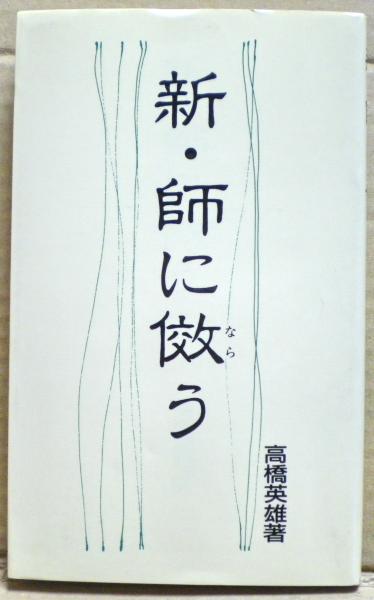 新・師に倣う
なら
高橋英雄著